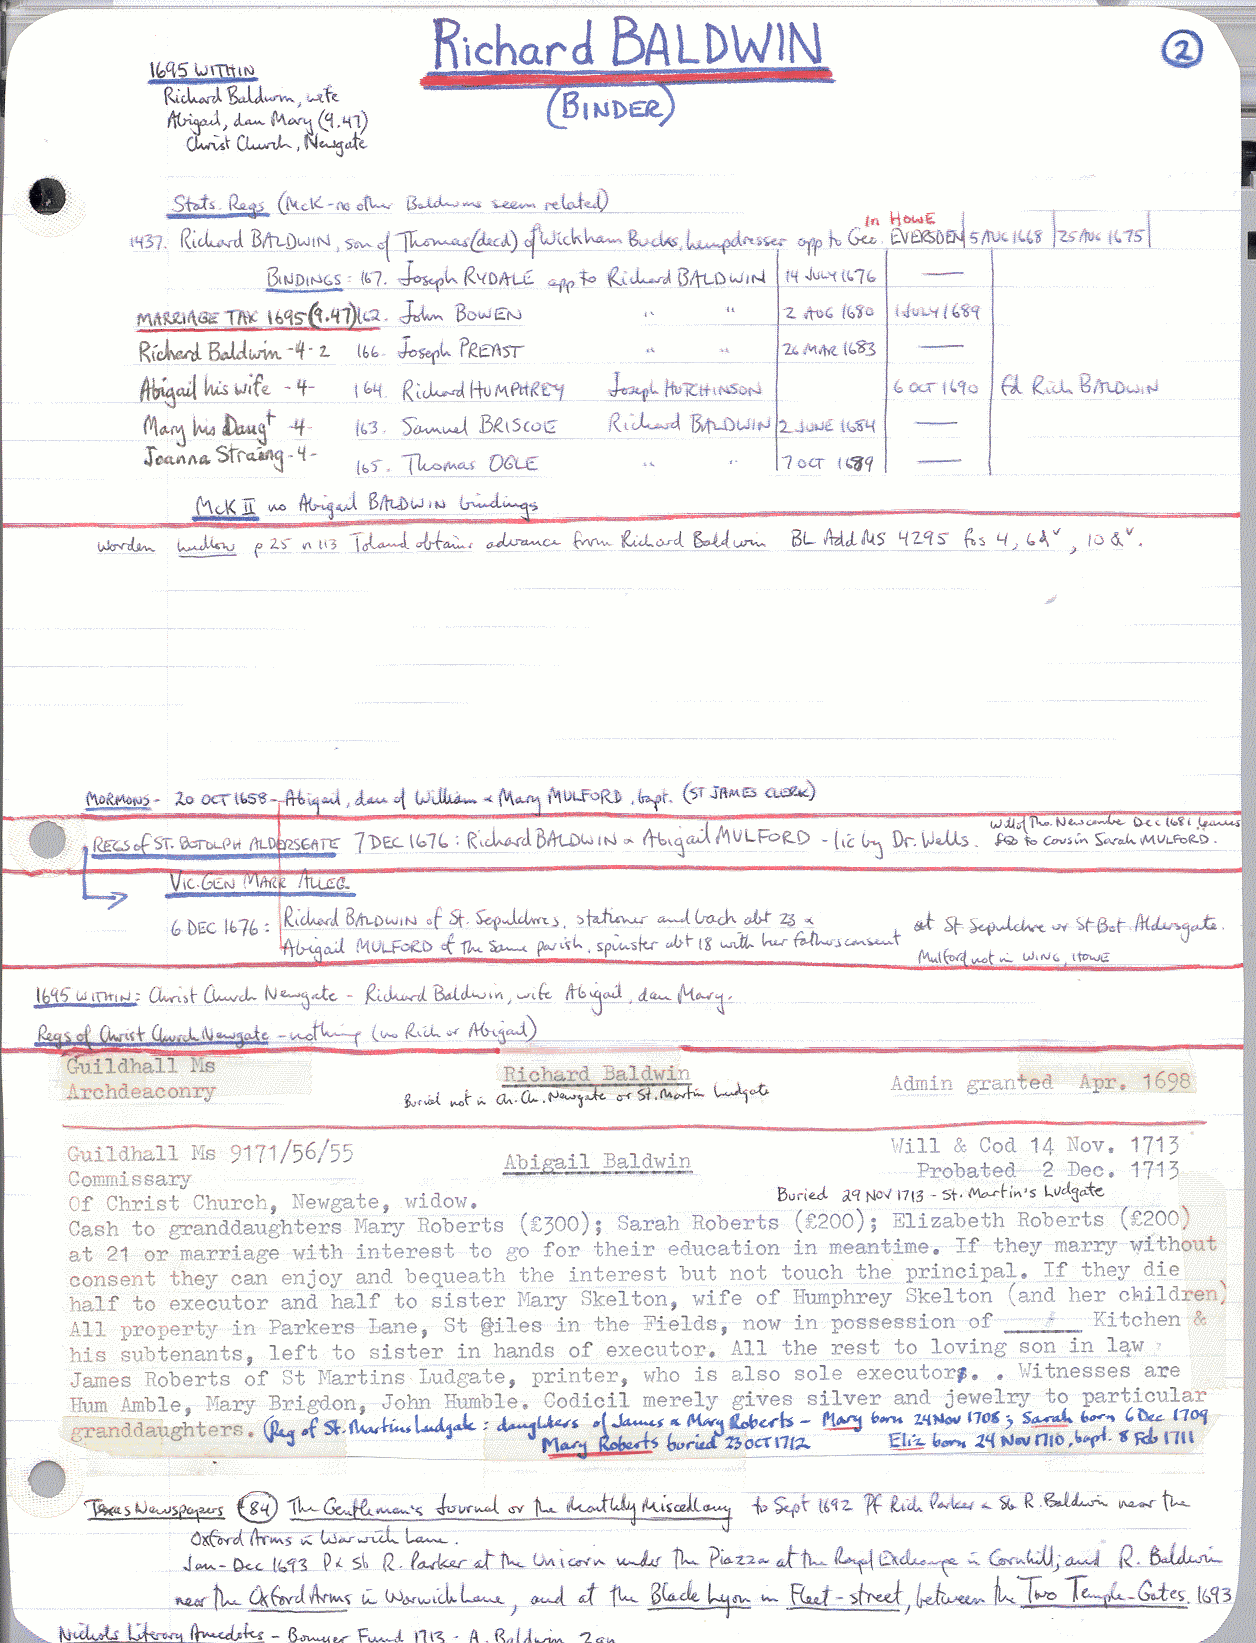 Richard BALDWIN
2
(BINDER)
1695 WITHIN
Richard Baldwin, wife
Abigail, dau Mary (9.47)
Christ Church, Newgate
Stats. Regs (McK - no other Baldwins seem related)
In HOWE
1437. Richard BALDWIN, son of Thomas (decd) of Wickham Bucks, hempdresser app to Geo. EVERSDEN 5 AUG 1668 25 AUG 1675
BINDINGS: 167. Joseph RYDALE app to Richard BALDWIN 14 JULY 1676 —
MARRIAGE TAX 1695 (9.47) 162. John BOWEN " " 2 AUG 1680 1 JULY 1689
Richard Baldwin -4-2 166. Joseph PREAST " " 26 MAR 1683 —
Abigail his wife -4- 164. Richard HUMPHREY Joseph HUTCHINSON 6 OCT 1690 fd Rich BALDWIN
Mary his Daugt -4- 163. Samuel BRISCOE Richard BALDWIN 2 JUNE 1684 —
Joanna Straing -4- 165. Thomas OGLE " " 7 OCT 1689 —
McK II no Abigail BALDWIN bindings
Worden Ludlow p 25 n 113 Toland obtains advance from Richard Baldwin BL Add MS 4295 fos 4, 6&v, 10&v.
MORMONS - 20 OCT 1658 - Abigail, dau of William & Mary MULFORD, bapt. (ST JAMES CLERK)
Will of Tho. Newcombe Dec 1681 leaves
REGS of ST. BOTOLPH ALDERSGATE 7 DEC 1676: Richard BALDWIN & Abigail MULFORD - lic by Dr. Wells. to cousin Sarah MULFORD.
VIC. GEN MARR ALLEG.
6 DEC 1676: Richard BALDWIN of St. Sepulchres, stationer and bach abt 23 & at St Sepulchre or St Bot. Aldersgate.
Abigail MULFORD of the same parish, spinster abt 18 with her fathers consent
Mulford not in WING, HOWE
1695 WITHIN: Christ Church Newgate - Richard Baldwin, wife Abigail, dau Mary.
Regs of Christ Church Newgate - nothing (no Rich or Abigail)
Guildhall Ms
Archdeaconry
Richard Baldwin
Admin granted Apr. 1698
Buried not in Ch. Ch. Newgate or St. Martin Ludgate
Guildhall Ms 9171/56/55
Will & Cod 14 Nov. 1713
Abigail Baldwin
Commissary
Probated 2 Dec. 1713
Of Christ Church, Newgate, widow.
Buried 29 NOV 1713 - St. Martin's Ludgate
Cash to granddaughters Mary Roberts (£300); Sarah Roberts (£200); Elizabeth Roberts (£200)
at 21 or marriage with interest to go for their education in meantime. If they marry without
consent they can enjoy and bequeath the interest but not touch the principal. If they die
half to executor and half to sister Mary Skelton, wife of Humphrey Skelton (and her children)
All property in Parkers Lane, St Giles in the Fields, now in possession of ____ Kitchen &
his subtenants, left to sister in hands of executor. All the rest to loving son in law
James Roberts of St Martins Ludgate, printer, who is also sole executor. . Witnesses are
Hum Amble, Mary Brigdon, John Humble. Codicil merely gives silver and jewelry to particular
granddaughters. (Reg of St. Martins Ludgate: daughters of James & Mary Roberts - Mary born 24 Nov 1708; Sarah born 6 Dec 1709
Mary Roberts buried 23 OCT 1712 Eliz born 24 Nov 1710, bapt. 8 Feb 1711
Texas Newspapers 84 The Gentleman's Journal or the Monthly Miscellany to Sept 1692 Pf Rich Parker & Sb R. Baldwin near the
Oxford Arms in Warwick Lane.
Jan-Dec 1693 P & Sb R. Parker at the Unicorn under the Piazza at the Royal Exchange in Cornhill; and R. Baldwin
near the Oxford Arms in Warwick Lane, and at the Black Lyon in Fleet-street, between the Two Temple-Gates. 1693
Nichols Literary Anecdotes - Bowyer Fund 1713 - A. Baldwin 2gn